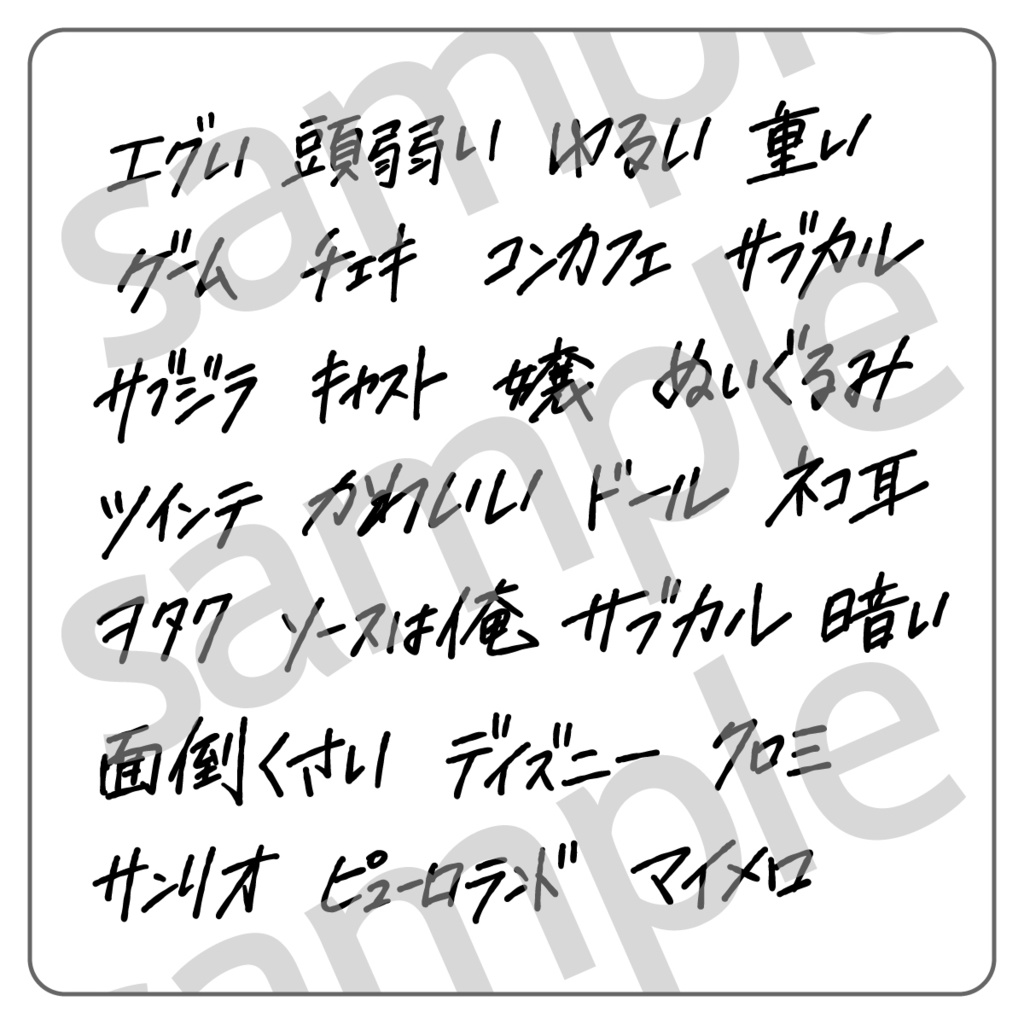 エグい 頭弱い ゆるい 重い
ゲーム チェキ コンカフェ サブカル
サブジラ キャスト 嬢 ぬいぐるみ
ツインテ かわいい ドール ネコ耳
ヲタク ソースは俺 サブカル 暗い
面倒くさい ディズニー クロミ
サンリオ ピューロランド マイメロ
sample
sample
sample
sample